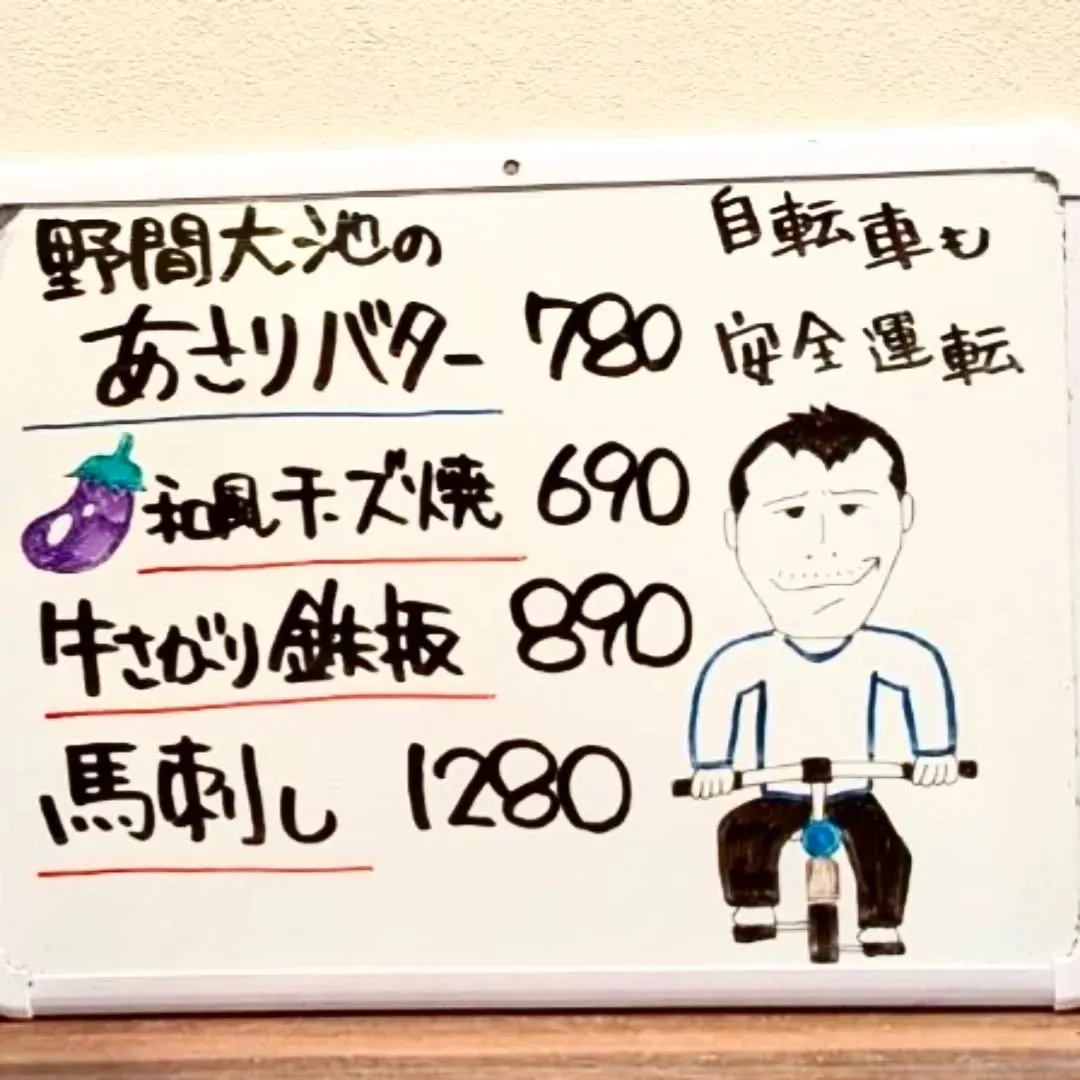 野間大池の
あさりバター 780
和風チーズ焼 690
牛さがり鉄板 890
馬刺し 1280
自転車も
安全運転